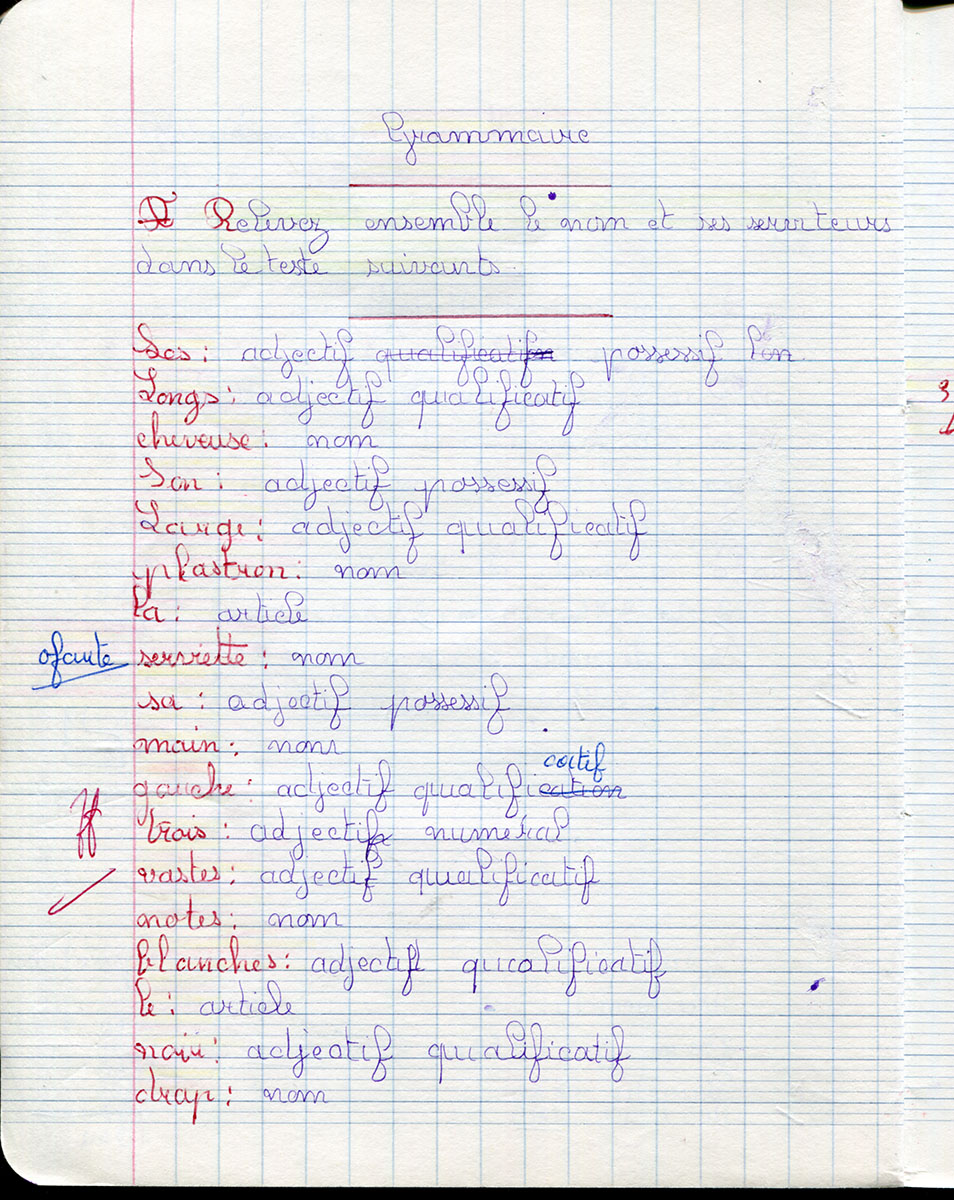 Grammaire
I Relevez ensemble le nom et ses serviteurs
dans le teste suivants.
Ses : adjectif qualificatif possessif
Longs : adjectif qualificatif
cheveuse : nom
Son : adjectif possessif
Large : adjectif qualificatif
plastron : nom
la : article
0 faute serviette : nom
sa : adjectif possessif
main : nom
catif
gauche : adjectif qualification
trois : adjectif numéral
vastes : adjectif qualificatif
notes : nom
blanches : adjectif qualificatif
le : article
noir : adjectif qualificatif
drap : nom